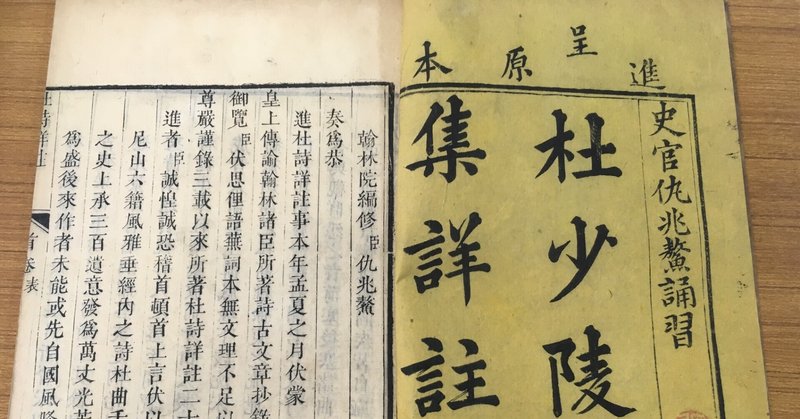 進呈原本
史官仇兆鰲誦習
杜少陵
集詳註
翰林院編修臣仇兆鰲
奏爲恭
進杜詩詳註事本年孟夏之月伏蒙
皇上傳諭翰林諸臣所著詩古文章抄錄
御覽臣伏思俚語蕪詞本無文理不足以
尊嚴謹錄三載以來所著杜詩詳註二十
進者臣誠惶誠恐稽首頓首上言伏以
尼山六籍風雅垂經內之詩杜曲千
之史上承三百遺意發爲萬丈光芒
爲盛後來作者未能或先自國風降
杜詩詳註 首卷表